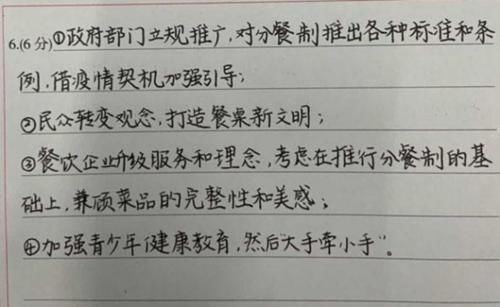 6.(6分)①政府部门立规推广,对分餐制推出各种标准和条
例,借疫情契机加强引导;
②民众转变观念,打造餐桌新文明;
③餐饮企业升级服务和理念,考虑在推行分餐制的基
础上,兼顾菜品的完整性和美感;
④加强青少年健康教育,然后“大手牵小手”。